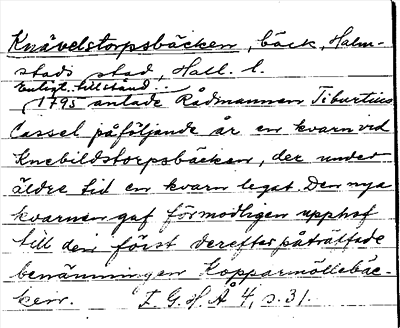 Knävelstorpsbäcken, bäck, Halm-
stads stad, Hall. l.
Enligt tillstånd
1795 anlade Rådmannen Tiburtius
Cassel påföljande år en kvarn vid
Knebildstorpsbäcken, der under
äldre tid en kvarn legat. Den nya
kvarnen gaf förmodligen upphof
till den först derefter påträffade
benämningen Kopparmöllebäc-
ken. I G. H. Å 4, s. 31.